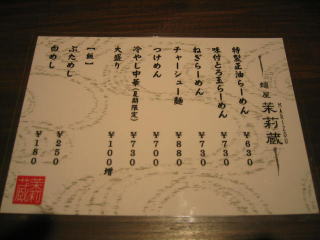 麺屋 茉莉蔵
MARRIZOU
特製正油らーめん ￥630
味付とろ玉らーめん ￥730
ねぎらーめん ￥730
チャーシュー麺 ￥880
つけめん ￥700
冷やし中華(夏期限定) ￥730
大盛り ￥100増
【飯】
ぶためし ￥250
白めし ￥180
茉莉蔵